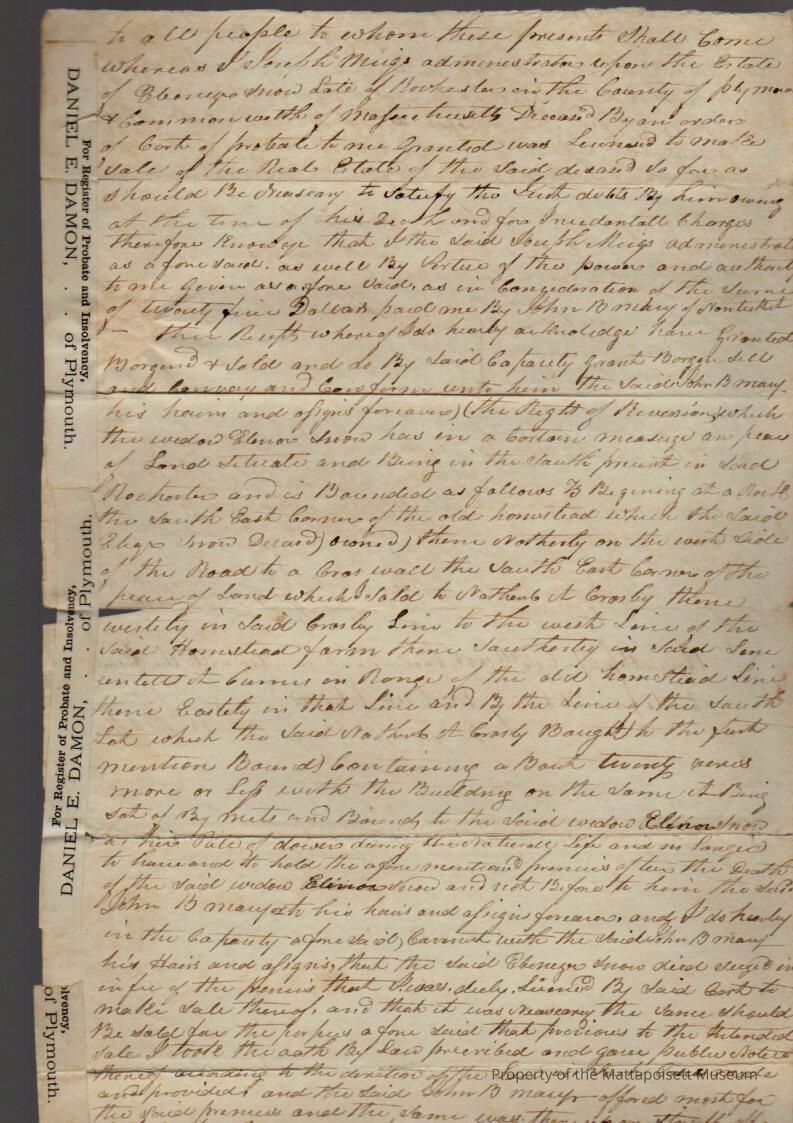 to all people to whom these presents Shall Come
whereas I Joseph Meigs administrator upon the Estate
of Ebenezer Snow Late of Rochester in the County of plymou
& Common welth of Massechusetts Deceased By an order
of Cort of probate to me Granted was Licensed to make
Sale of the Real Estate of the Said desased So far as
should Be Neaseary to Satisfy the Just debts By him owing
at the time of his Death and for Incedantall Charges
therefore Know ye that I the Said Joseph Meigs administrat
as a fore said. as well By Vertue of the power and authorit
to me Given as a fore Said, as in Consideration of the Sume
of twenty five Dollars paid me By John B mayr of Nontucket
the Receipt whereof I do hearby acknoledge have Granted
Borgend & Sold and do By Said Capacity Grant Borgen Sell
and Convay and Conform unto him the Said John B mayr
his hairs and assigns foreaver) (the Right of Revession, which
the widow Elenor Snow has in a Certain measuge an peac
of Land Situate and Being in the South precint in Said
Rochester and is Bounded as follows Begining at a Rock
the South East Corner of the old homstead which the Said
Ebezr Snow Decasd) owned) thene Notherly on the west Side
of the Road to a Cros wall the South East Corner of the
peace of Land which I Sold to Crosby thene
westely in Said Crosby Line to the west Line of the
Said Homstead farm thene Southerly in Said Line
untell it Comes in Range of the old homstead Line
thene Eastely in that Line and By the Line of the South
Lot which the Said Crosby Baught) to the furst
mention Bound) Containing a Bout twenty acres
more or Less with the Building on the Same it Being
Sot of By mets and Bounds to the Said widow Elenor Snow
as hier of dower during Naturall Life and no Langer
to have and to hold the afore mentiond premises after the Death
of the Said widow Elinor Snow and not Before to him the Said
John B mayr & to his hairs and assigns foreaver, and I do hearby
in the Capacity afore Said) Cavenat with the Said John B mayr
his Hairs and assigns, that the Said Ebenezer Snow died Seizd in
in fee of the premises that I was duly Licensd By Said Cort to
make Sale thereof, and that it was Neaseary the Same Should
Be Sold for the porpes a fore Said that previous to the Intended
Sale I took the oath By Law prescribed and gave public Notice
thereof according to the direction of the
and provided; and the Said John B mayr offerd most for
the Said premises and the Same was
DANIEL E. DAMON, . . of Plymouth.
For Register of Probate and Insolvency,
For Register of Probate and Insolvency,
DANIEL E. DAMON, . . of Plymouth.
olvency,
of Plymouth.
Property of the Mattapoisett Museum